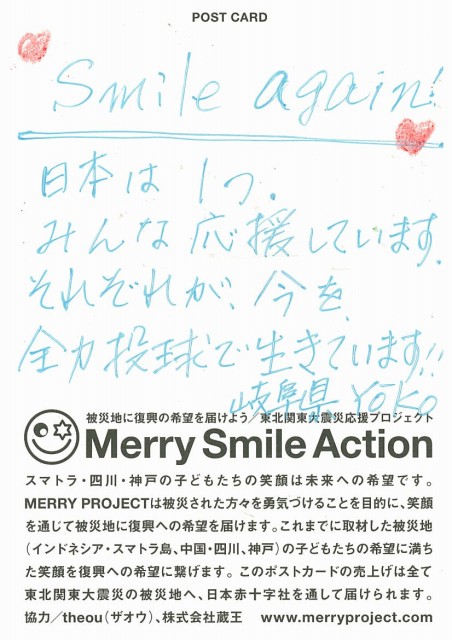 POST CARD
Smile again!
日本は1つ.
みんな応援しています.
それぞれが、今を、
全力投球で生きています!!
岐阜県 YOKO
被災地に復興の希望を届けよう／東北関東大震災応援プロジェクト
Merry Smile Action
スマトラ・四川・神戸の子どもたちの笑顔は未来への希望です。
MERRY PROJECTは被災された方々を勇気づけることを目的に、笑顔
を通じて被災地に復興への希望を届けます。これまでに取材した被災地
（インドネシア・スマトラ島、中国・四川、神戸）の子どもたちの希望に満ち
た笑顔を復興への希望に繋げます。このポストカードの売上げは全て
東北関東大震災の被災地へ、日本赤十字社を通して届けられます。
協力／theou（ザオウ）、株式会社蔵王 www.merryproject.com